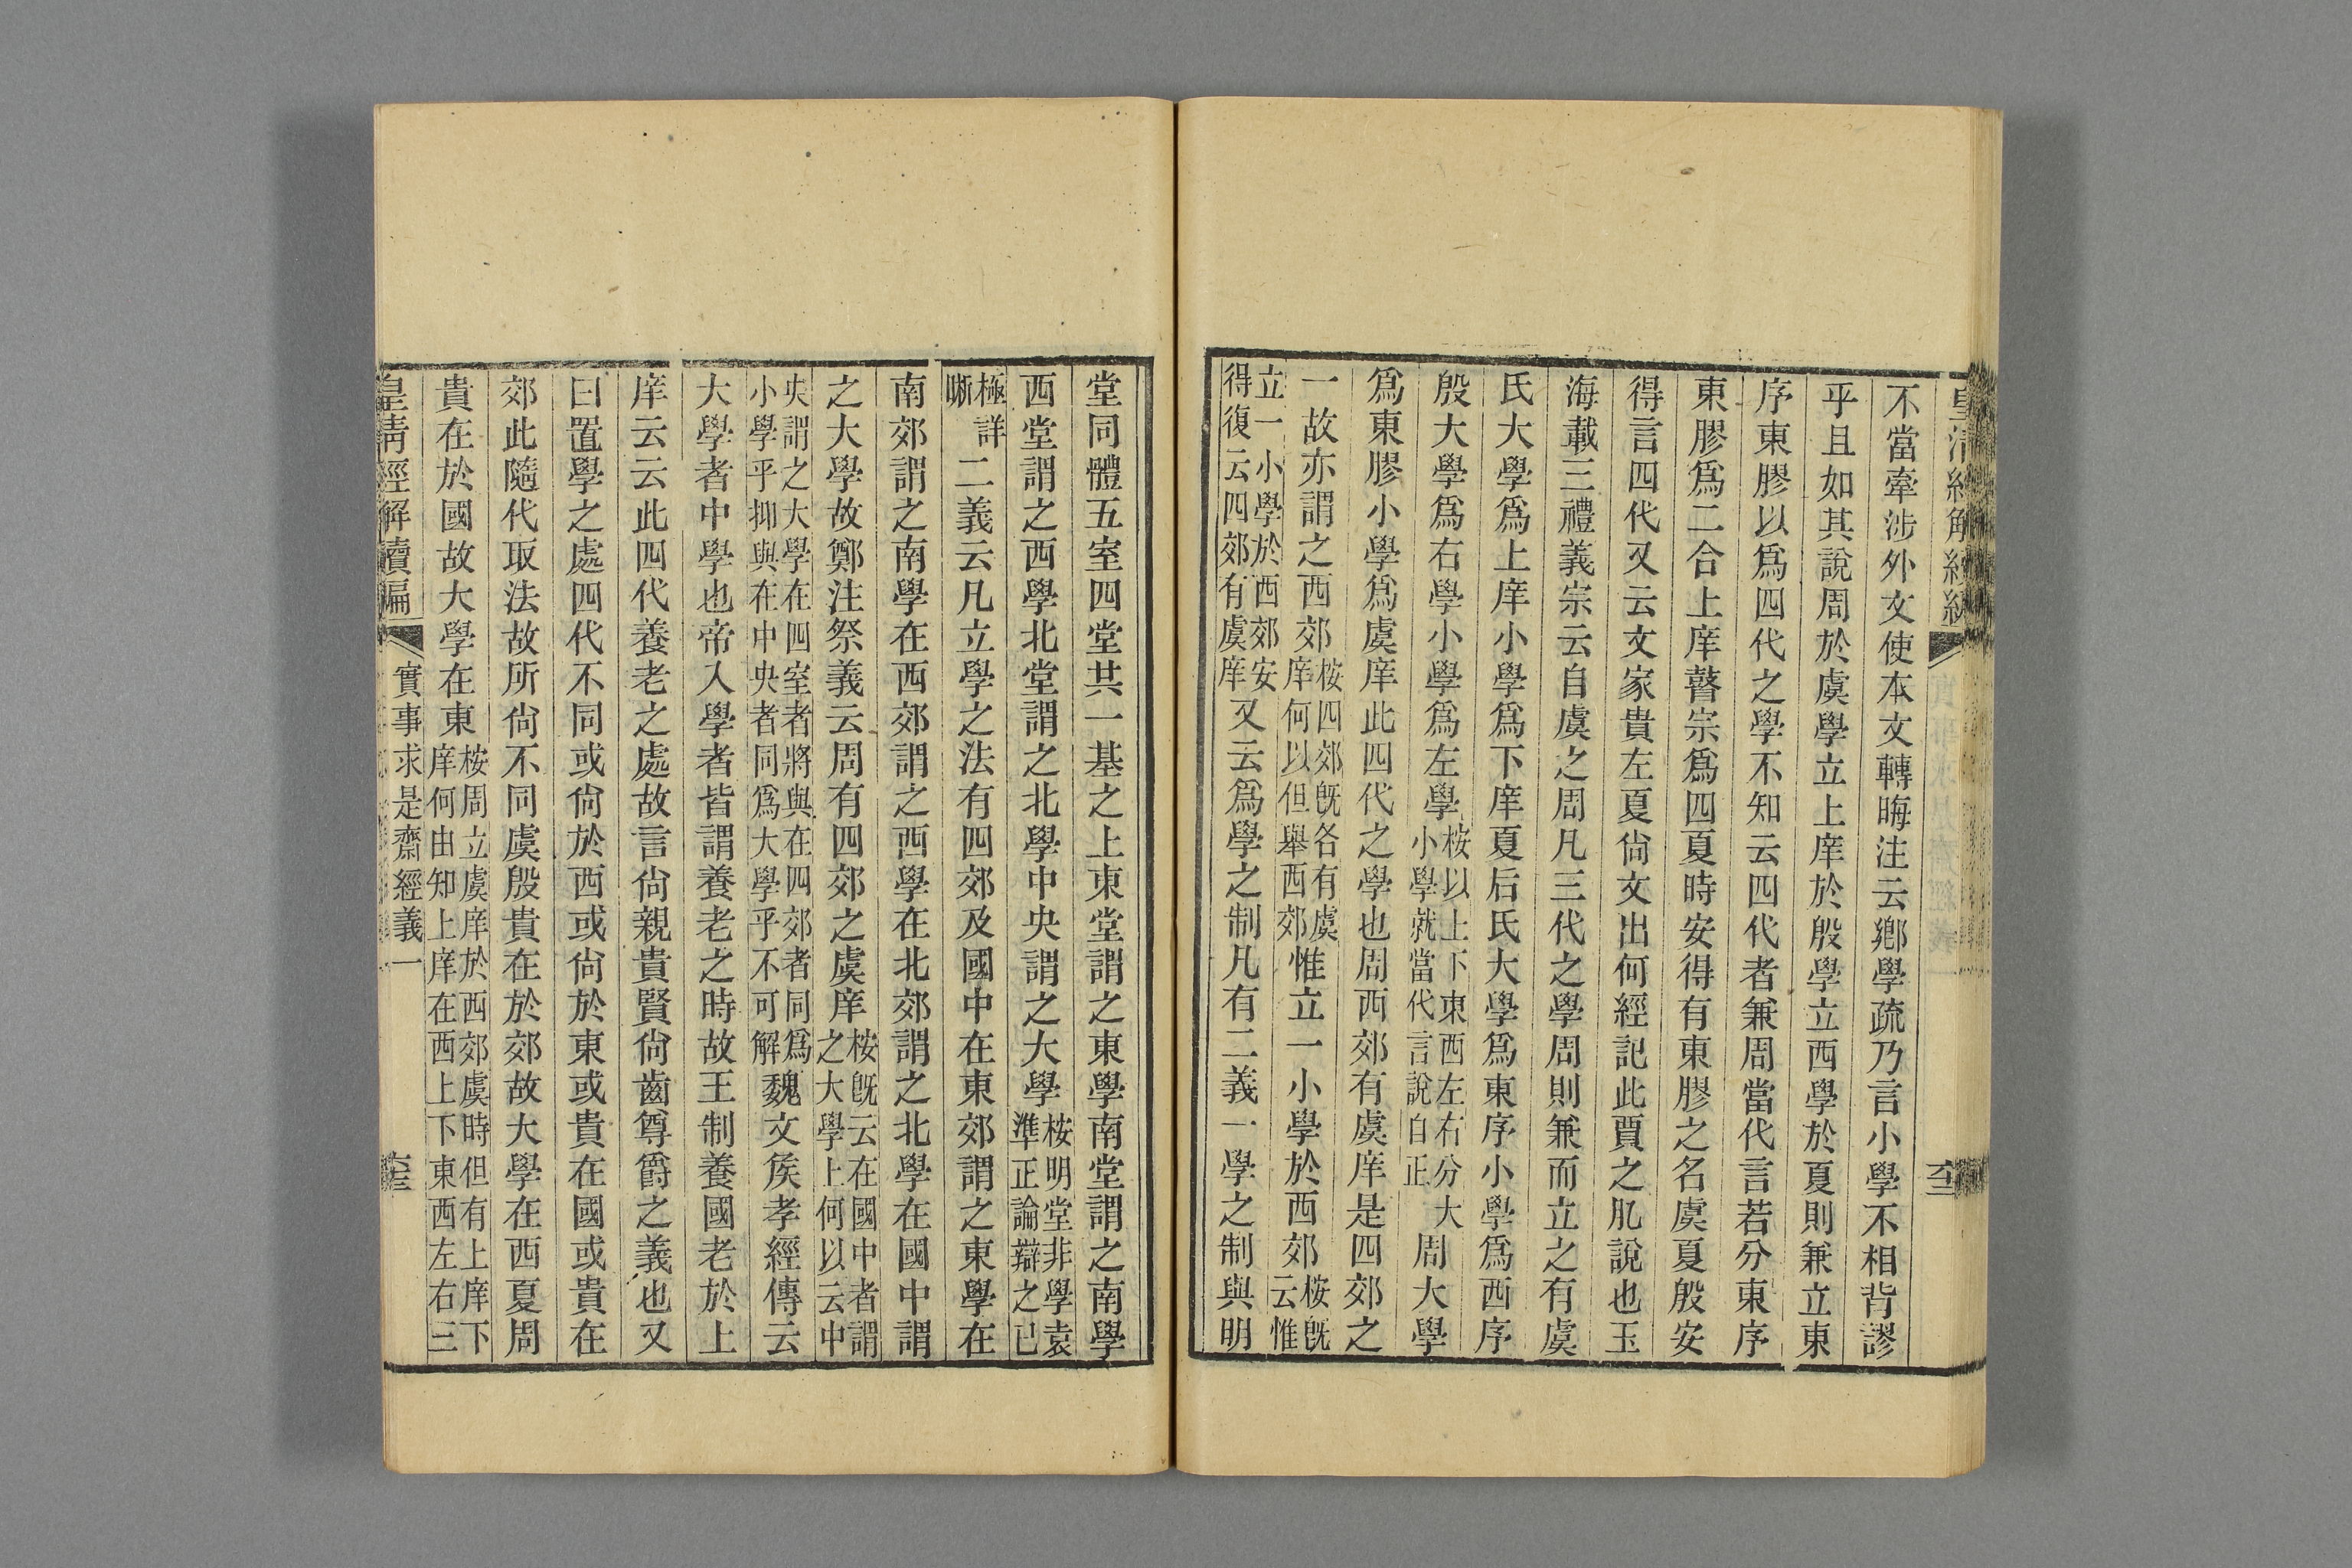 不當牽涉外文使本文轉晦注云鄉學疏乃言小學不相背謬
乎且如其說周於虞學立上庠於殷學立西學於夏則兼立東
序東膠以爲四代之學不知云四代者兼周當代言若分東序
東膠爲二合上庠瞽宗爲四夏時安得有東膠之名虞夏殷安
得言四代又云文家貴左夏尙文出何經記此賈之肊說也玉
海載三禮義宗云自虞之周凡三代之學周則兼而立之有虞
氏大學爲上庠小學爲下庠夏后氏大學爲東序小學爲西序
殷大學爲右學小學爲左學桉以上下東西左右分大小學就當代言說自正周大學
爲東膠小學爲虞庠此四代之學也周西郊有虞庠是四郊之
一故亦謂之西郊桉四郊旣各有虞庠何以但舉西郊惟立一小學於西郊桉旣云惟
立一小學於西郊安得復云四郊有虞庠又云爲學之制凡有二義一學之制與明
堂同體五室四堂共一基之上東堂謂之東學南堂謂之南學
西堂謂之西學北堂謂之北學中央謂之大學桉明堂非學袁準正論辯之已
極詳晰二義云凡立學之法有四郊及國中在東郊謂之東學在
南郊謂之南學在西郊謂之西學在北郊謂之北學在國中謂
之大學故鄭注祭義云周有四郊之虞庠桉旣云在國中者謂之大學上何以云中
央謂之大學在四室者將與在四郊者同爲小學乎抑與在中央者同爲大學乎不可解魏文矦孝經傳云
大學者中學也帝入學者皆謂養老之時故王制養國老於上
庠云云此四代養老之處故言尙親貴賢尙齒尊爵之義也又
曰置學之處四代不同或尙於西或尙於東或貴在國或貴在
郊此隨代取法故所尙不同虞殷貴在於郊故大學在西夏周
貴在於國故大學在東桉周立虞庠於西郊虞時但有上庠下庠何由知上庠在西上下東西左右三
皇清經解續編
實事求是齋經義一